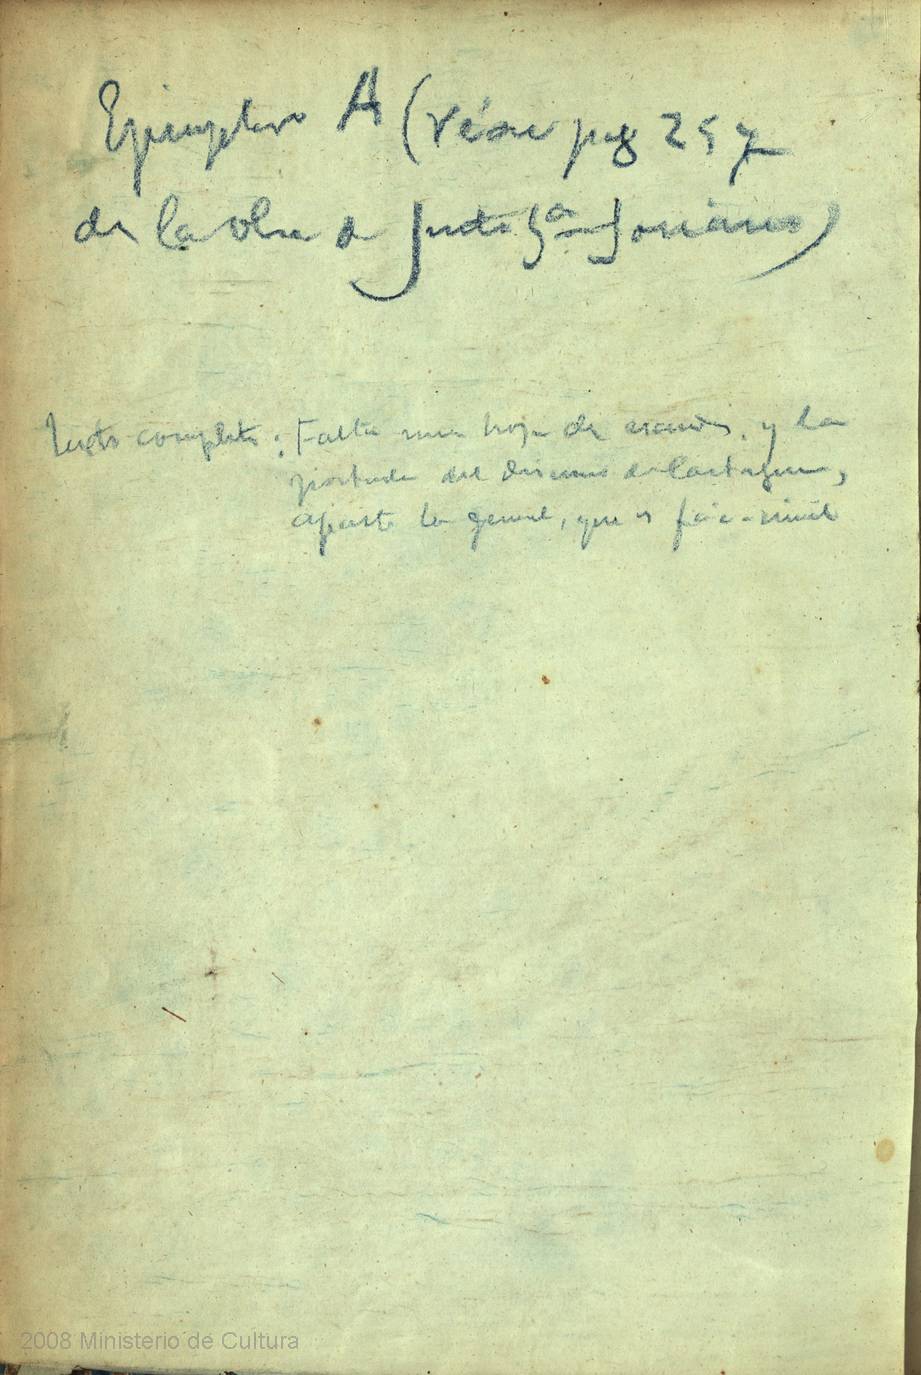 Ejemplar A (véase pag 257
de la obra de Justo Gª Soriano)
Texto completo: Falta una hoja de escudos, y la
portada del discurso de Cartagena,
aparte la general, que es fác-simil
2008 Ministerio de Cultura